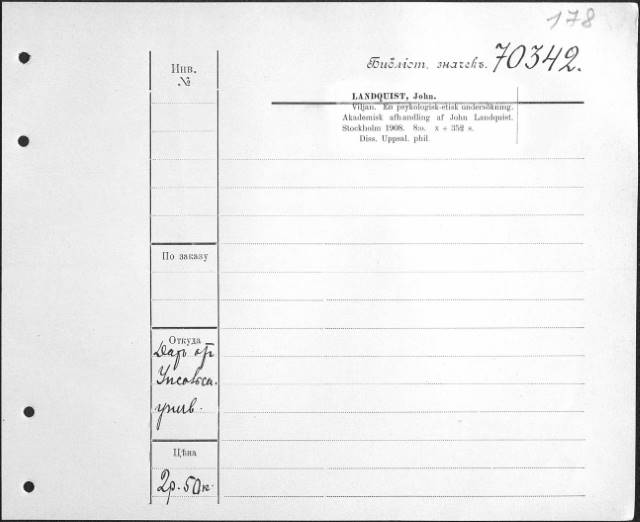 178
Библіот. значекъ. 70342.
Инв.
№
LANDQUIST, John.
Viljan. En psykologisk-etisk undersökning.
Akademisk afhandling af John Landquist.
Stockholm 1908. 8:o. x + 352 s.
Diss. Uppsal. phil
По заказу
Откуда
Даръ от
Упсальск.
унив.
Цѣна
2р. 50к.